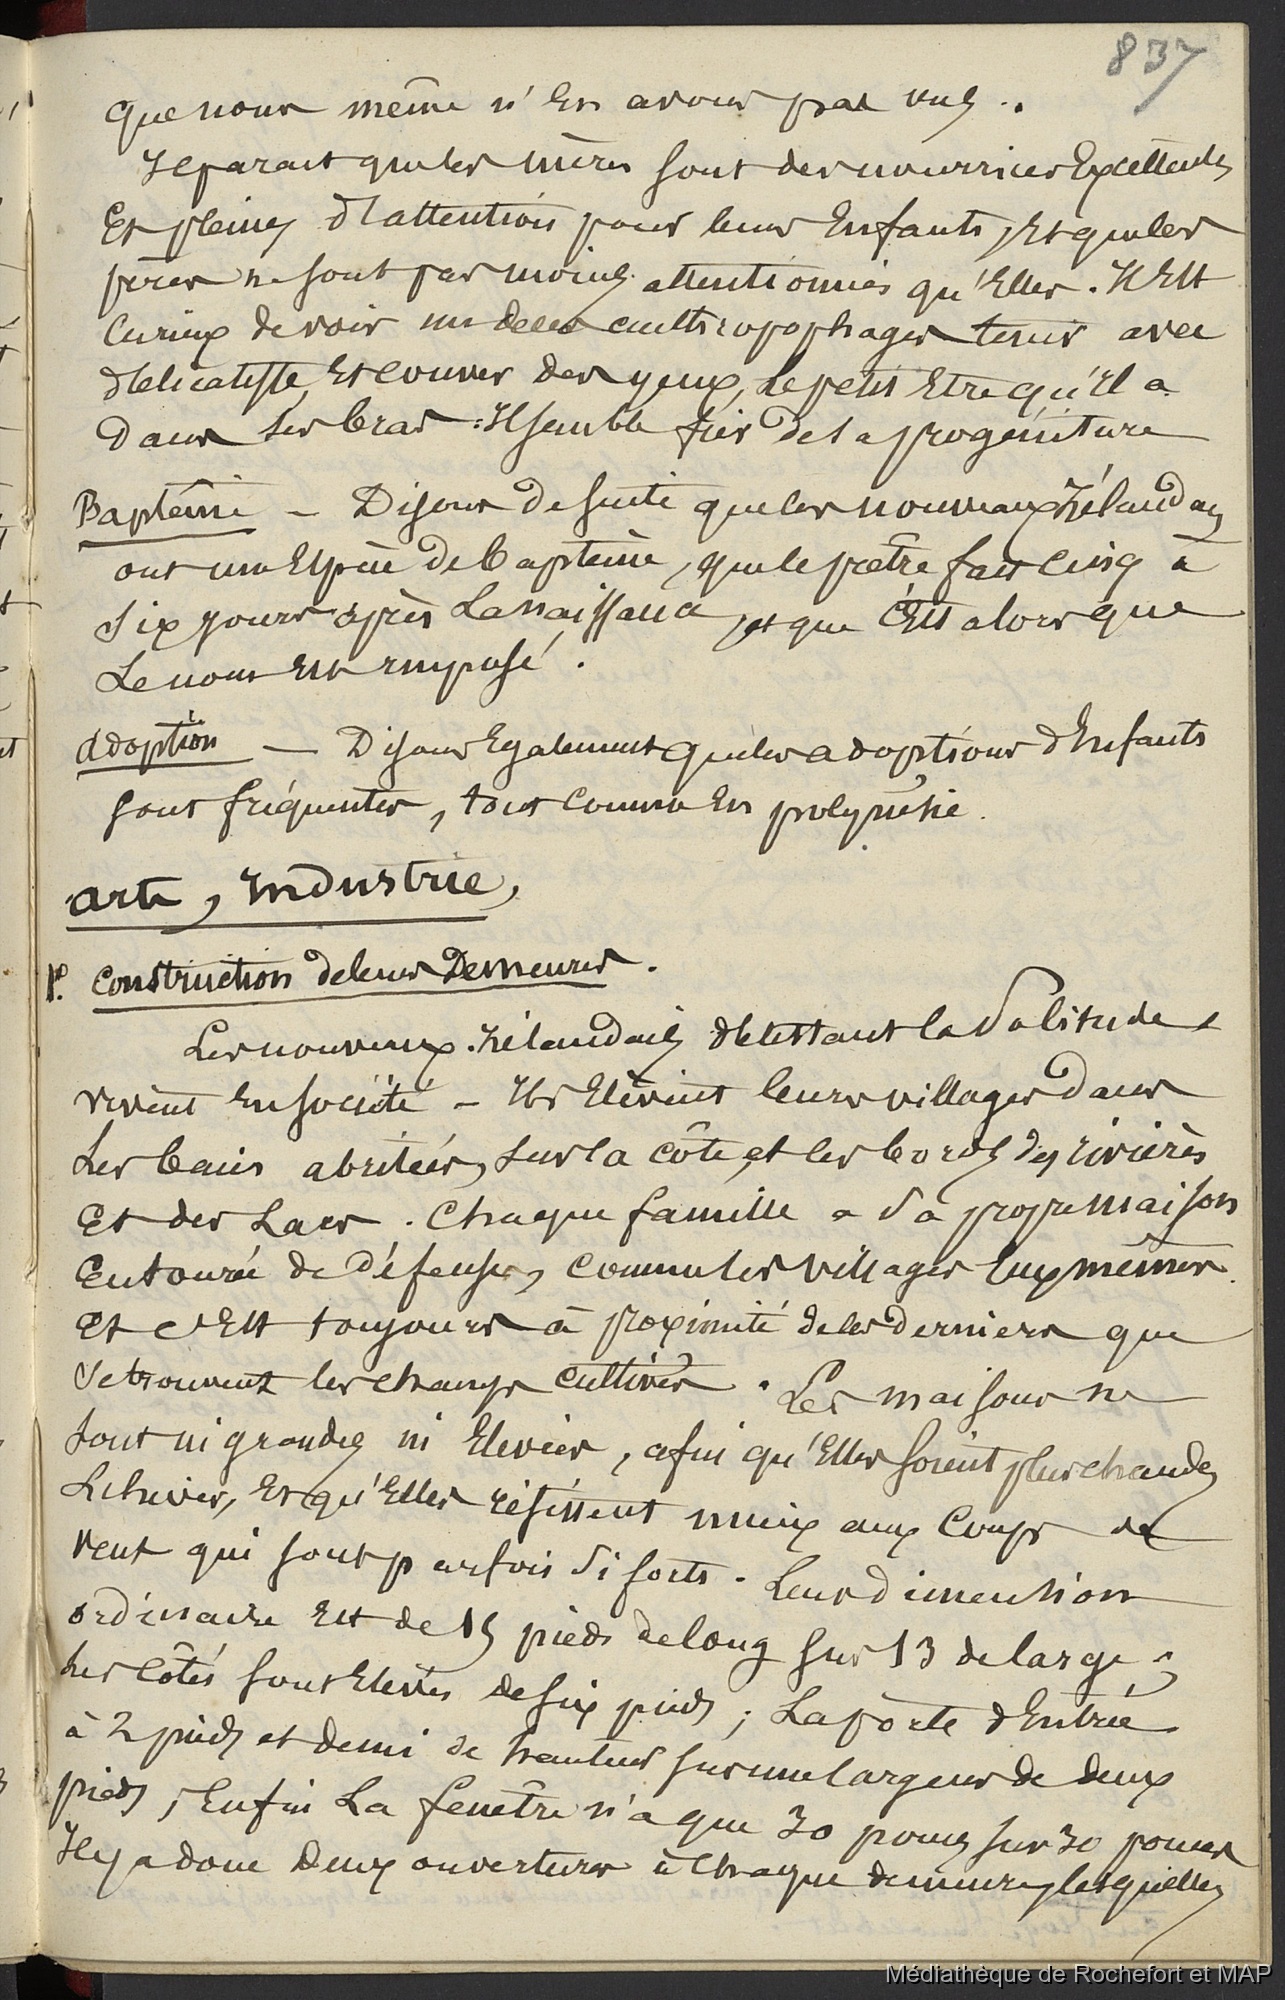 837
que nous même n'en avons pas vus..
Il parait que les mères sont des nourrices excellentes
et pleines d'attention pour leurs enfants, et que les
pères ne sont pas moins attentionnés qu'elles. Il est
curieux de voir un de ces anthropophages tenir avec
délicatesse, et couver des yeux, le petit être qu'il a
dans ses bras. Il semble fier de sa progéniture
Baptême - Disons de suite que les nouveaux Zélandais
ont une espèce de baptême, que le prêtre fait cinq à
six jours après la naissance, et que c'est alors que
le nom est imposé.
adoption — Disons également que les adoptions d'enfants
sont fréquentes, tout comme en polynésie.
arts, industrie,
1º. Construction de leurs Demeures.
Les nouveaux-Zélandais détestant la solitude,
vivent en société - Ils élèvent leurs villages dans
les baies abritées, sur la côte, et les bords des rivières
et des lacs. Chaque famille a sa propre maison
entourée de défenses, comme les villages eux mêmes
et c'est toujours à proximité de ces derniers que
se trouvent les champs cultivés. Les maisons ne
sont ni grandes ni élevées, afin qu'elles soient plus chaudes
l'hiver, et qu'elles résistent mieux aux coups de
vent qui sont parfois si forts. Leur dimension
ordinaire est de 15 pieds de long sur 13 de large;
les côtés sont élevés de six pieds; la porte d'entrée
à 2 pieds et demi de hauteur sur une largeur de deux
pieds; enfin la fenêtre n'a que 30 pouces sur 30 pouces
Il y a donc deux ouvertures à chaque demeure, lesquelles
Médiathèque de Rochefort et MAP